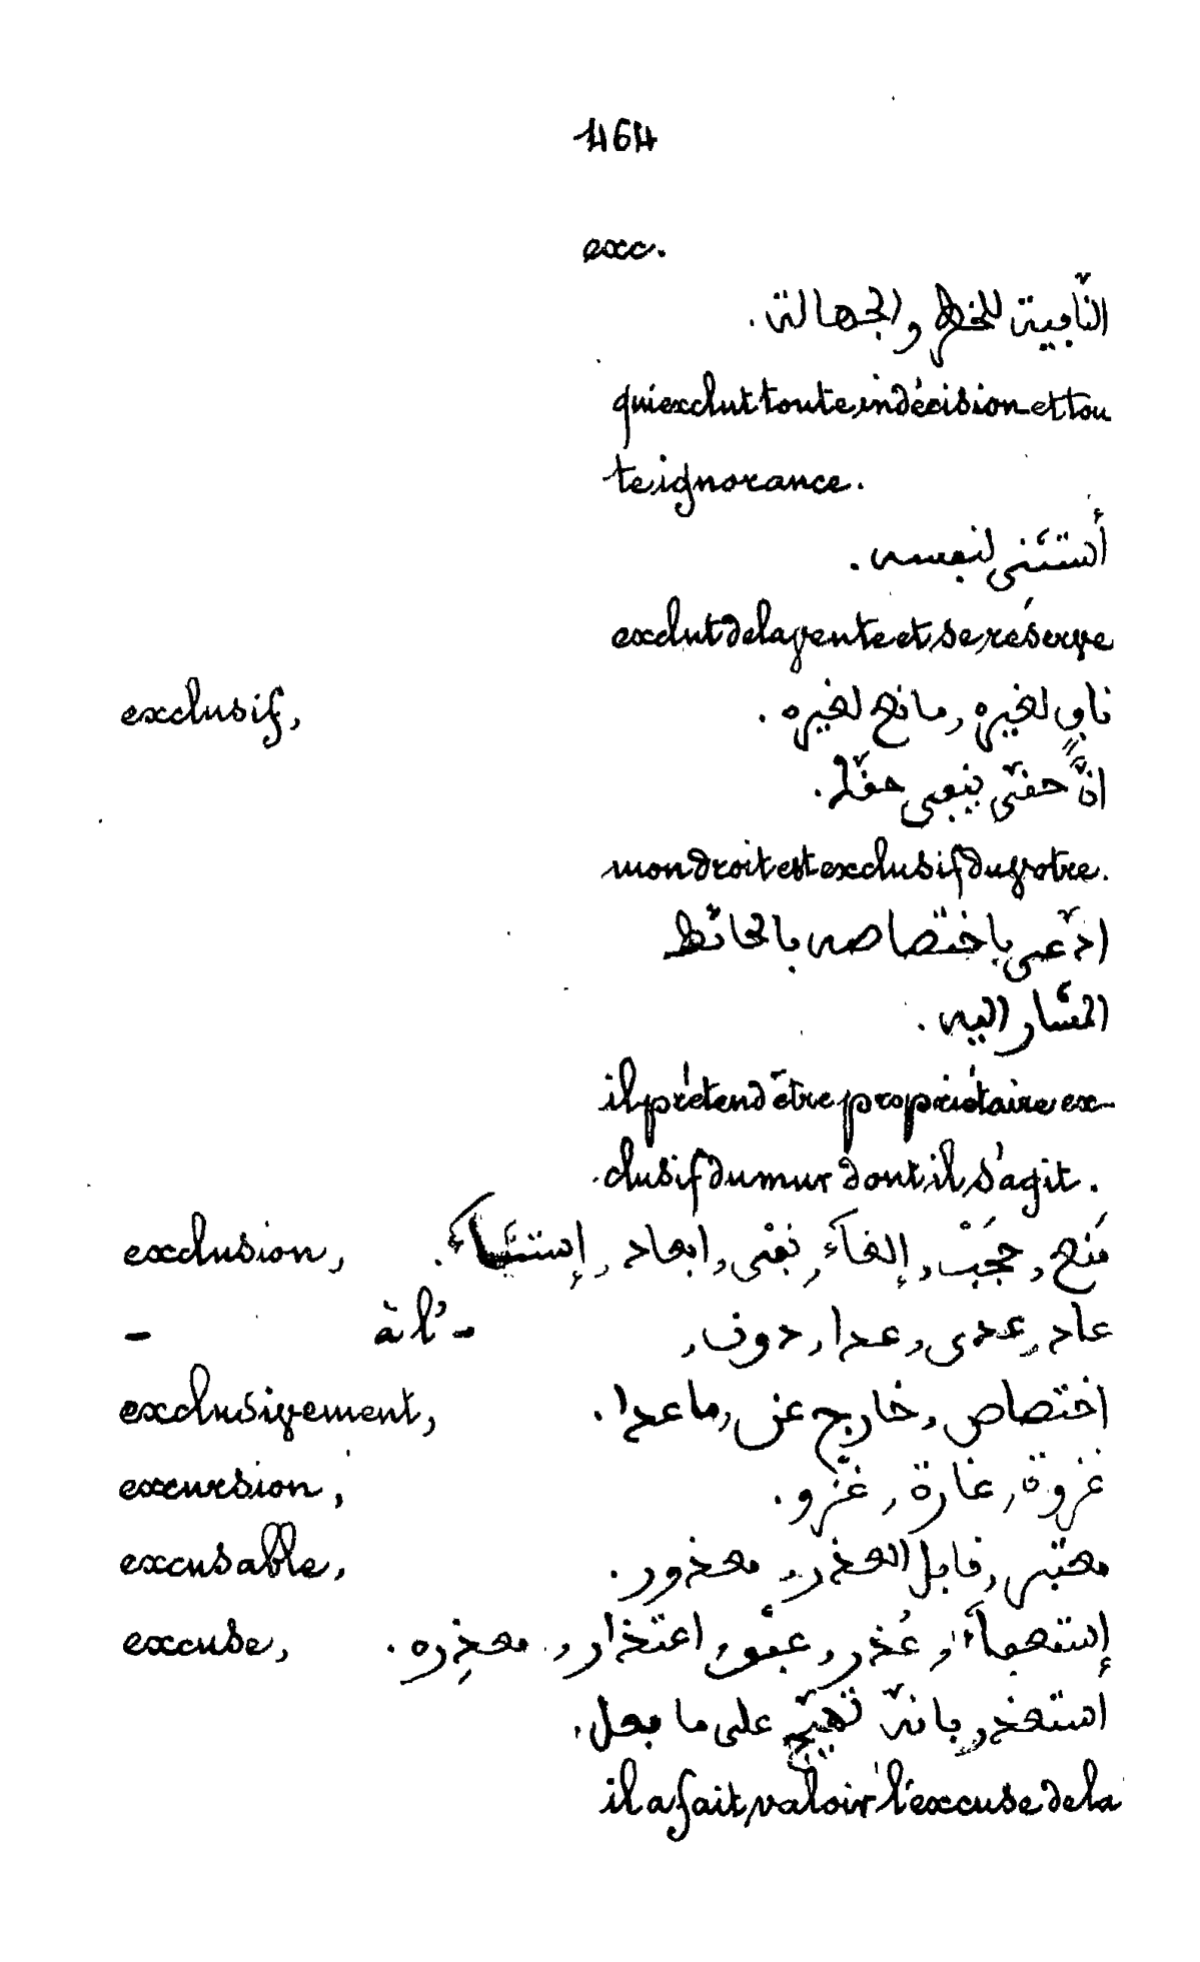 464
exc.
النّافية للخطإ والجهالة.
qui exclut toute indécision et tou
te ignorance.
أستثنى لنفسه.
exclut de la vente et se réserve
exclusif, نافٍ لغيره, مانع لغيره.
انّ حقّى ينفى حقّك.
mon droit est exclusif du vôtre.
ادّعى باختصاصه بالحائط
المشار اليه.
il prétend être propriétaire ex-
clusif du mur dont il s'agit.
exclusion, مَنع, حَجَبْ, إلغآء, نفْى, ابعاد, إستثنآء.
– à l'- عاد, عدى, عدا, دون,
exclusivement, اختصاص, خارج عن, ما عدا.
excursion, غزوة, غارة, غزو.
excusable, معتبر, قابل العذر, معذور.
excuse, إستعفآء, عُذر, عفو, اعتذار, معذِره.
استعذر بانّه تهيّج على ما فعل.
il a fait valoir l'excuse de la